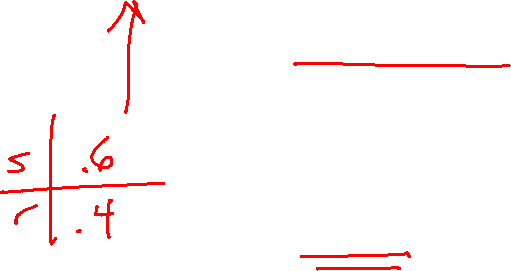 s .6
r .4